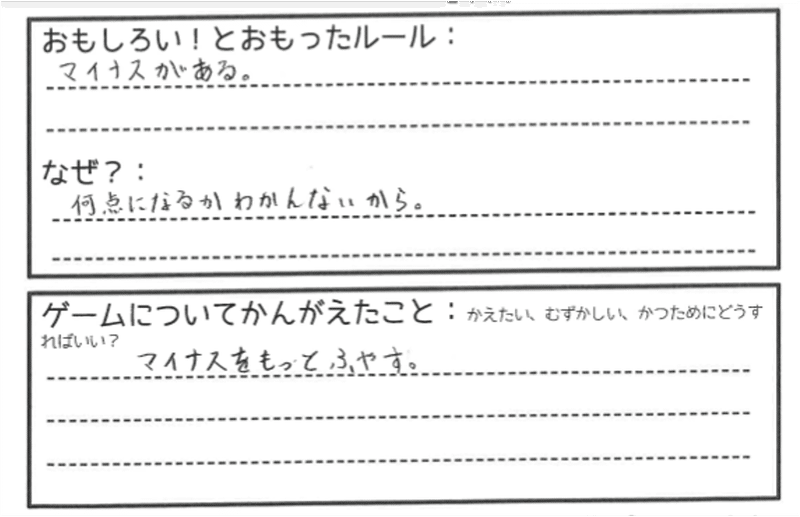 おもしろい！とおもったルール：
マイナスがある。
なぜ？：
何点になるかわかんないから。
ゲームについてかんがえたこと：かえたい、むずかしい、かつためにどうす
ればいい？
マイナスをもっとふやす。